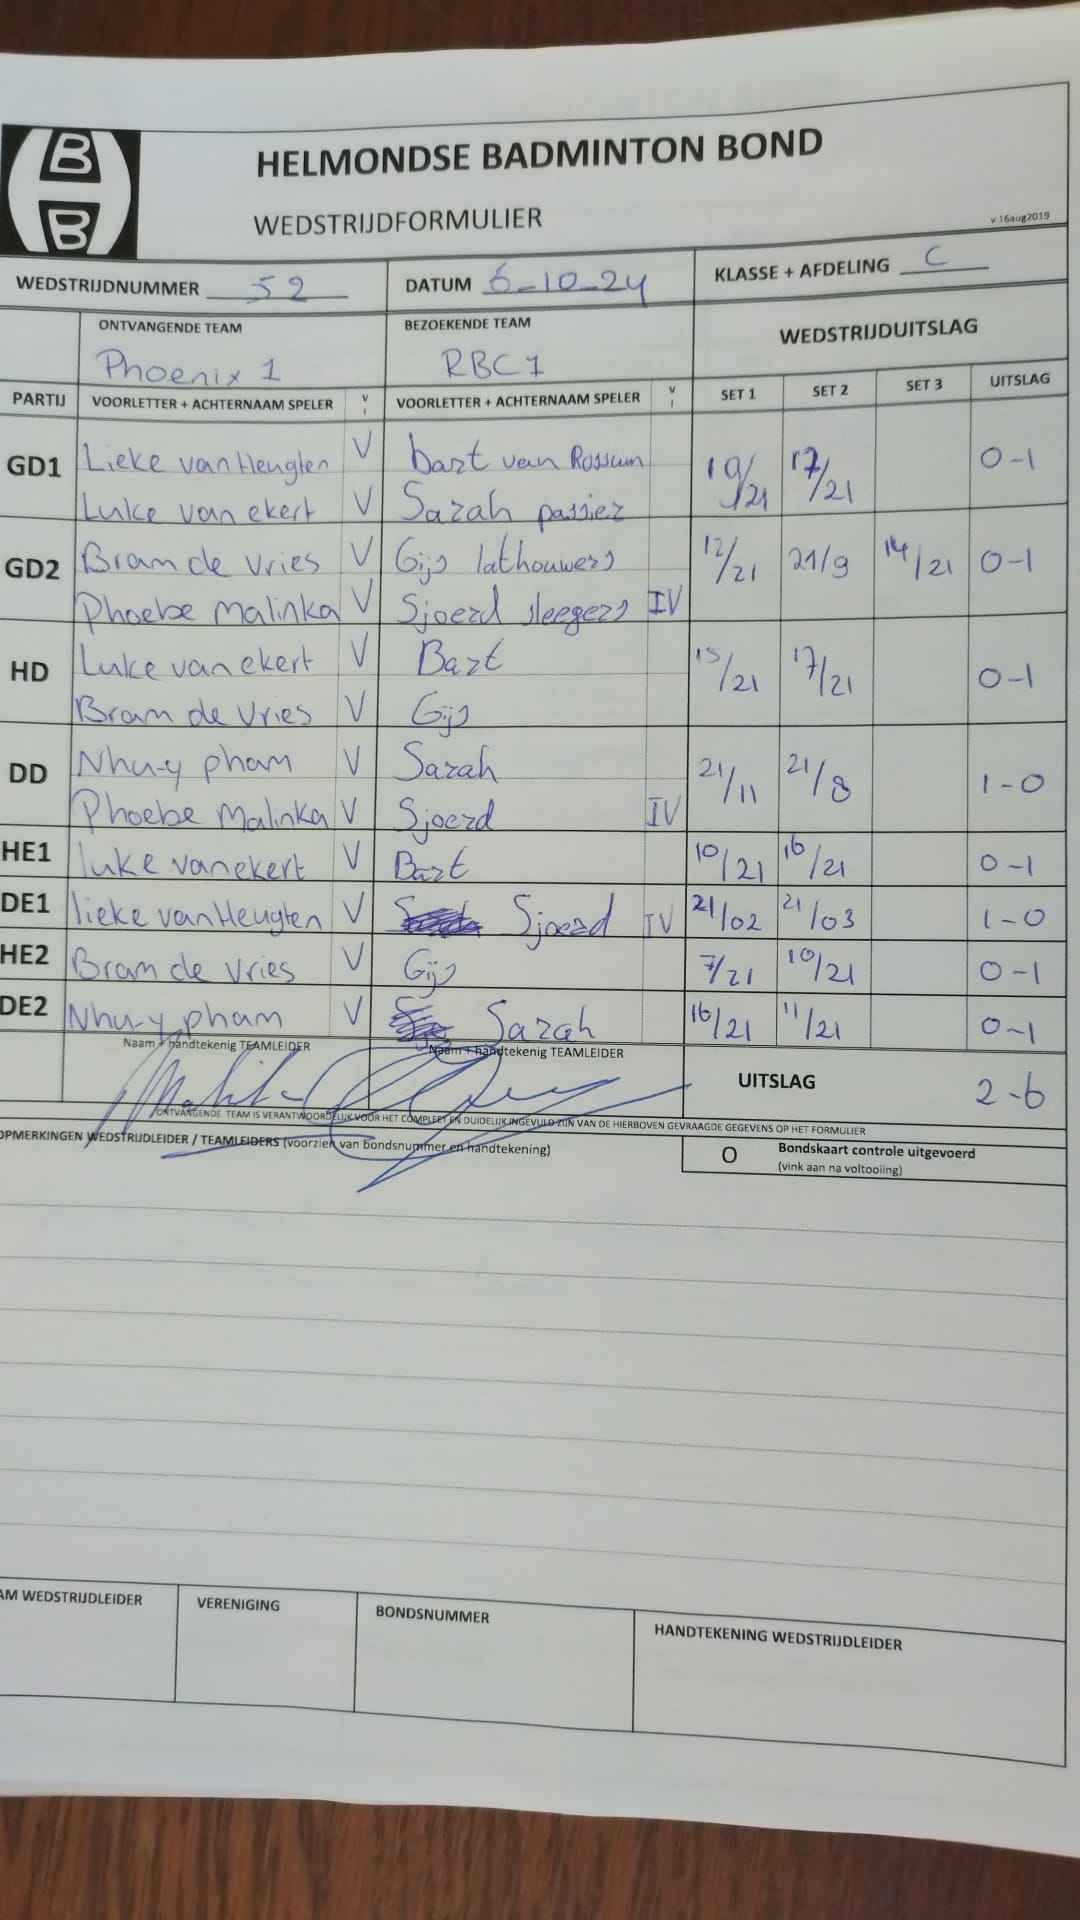 B
B
HELMONDSE BADMINTON BOND
WEDSTRIJDFORMULIER
v.16aug2019
WEDSTRIJDNUMMER 52 DATUM 6-10-24 KLASSE + AFDELING C
ONTVANGENDE TEAM BEZOEKENDE TEAM WEDSTRIJDUITSLAG
Phoenix 1 RBC1
PARTIJ VOORLETTER + ACHTERNAAM SPELER V I VOORLETTER + ACHTERNAAM SPELER V I SET 1 SET 2 SET 3 UITSLAG
GD1 Lieke van Heugten V bart van Rossum 19/21 17/21 0-1
Luke van ekert V Sarah passier
GD2 Bram de Vries V Gijs lathouwers 12/21 21/9 14/21 0-1
Phoebe Malinka V Sjoerd sleegers IV
HD Luke van ekert V Bart 15/21 17/21 0-1
Bram de Vries V Gijs
DD Nhu-y pham V Sarah 21/11 21/8 1-0
Phoebe Malinka V Sjoerd IV
HE1 luke van ekert V Bart 10/21 16/21 0-1
DE1 lieke van Heugten V Sjoerd IV 21/02 21/03 1-0
HE2 Bram de Vries V Gijs 7/21 10/21 0-1
DE2 Nhu-y pham V Sarah 16/21 11/21 0-1
Naam + handtekenig TEAMLEIDER Naam + handtekenig TEAMLEIDER
UITSLAG 2-6
ONTVANGENDE TEAM IS VERANTWOORDELIJK VOOR HET COMPLEET EN DUIDELIJK INGEVULD ZIJN VAN DE HIERBOVEN GEVRAAGDE GEGEVENS OP HET FORMULIER
OPMERKINGEN WEDSTRIJDLEIDER / TEAMLEIDERS (voorzien van bondsnummer en handtekening)
O Bondskaart controle uitgevoerd
(vink aan na voltooiing)
AM WEDSTRIJDLEIDER VERENIGING BONDSNUMMER HANDTEKENING WEDSTRIJDLEIDER